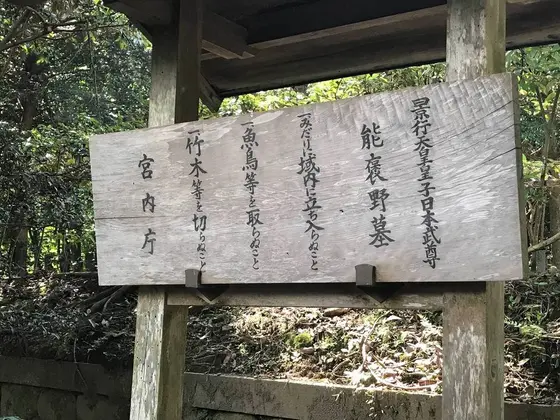 景行天皇皇子日本武尊
能褒野墓
一みだりに域内に立ち入らぬこと
一魚鳥等を取らぬこと
一竹木等を切らぬこと
宮内庁